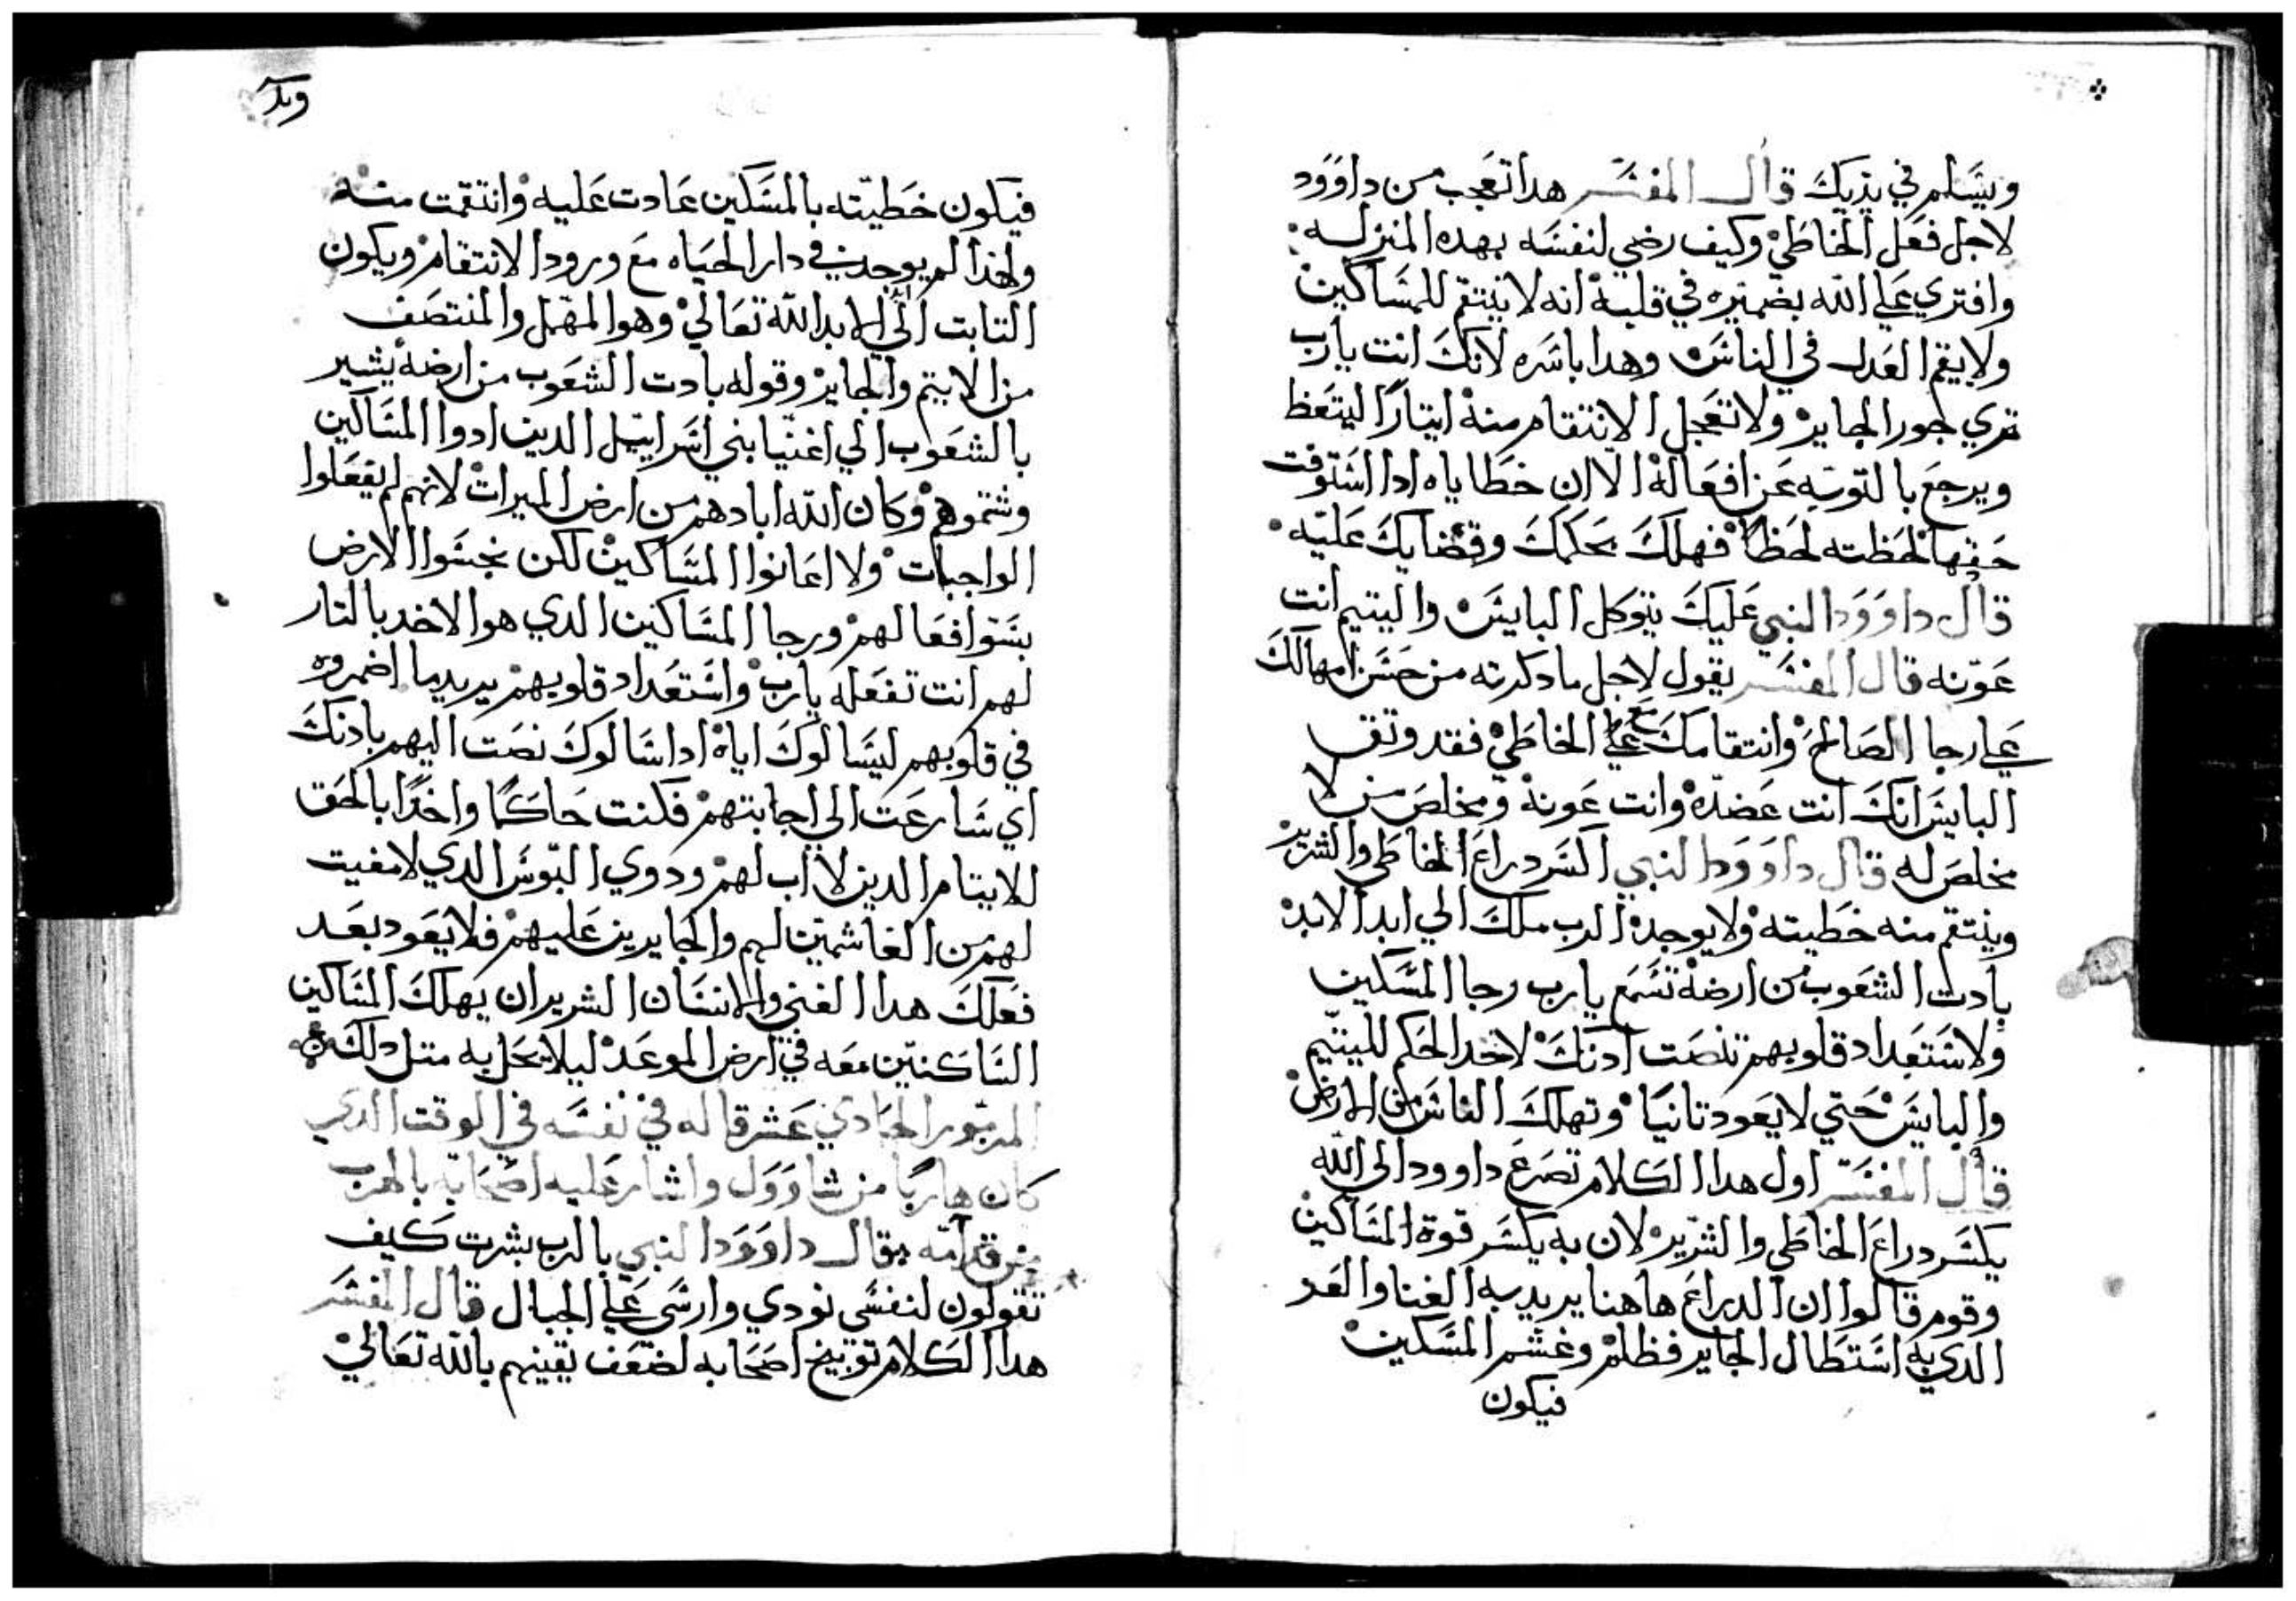 ويسلم في يديك قال المفسر هدا تعجب من داوود
لاجل فعل الخاطي وكيف رضي لنفسه بهده المنزله
وافتري علي الله بضميره في قلبه انه لا ينتقم للمساكين
ولا يقم العدل في الناس وهدا باسره لانك انت يارب
تري جور الجاير ولا تعجل الانتقام منه ايتارا ليتعظ
ويرجع بالتوبه عن افعاله الا ان خطاياه ادا استوفت
حقها لحظته لحظا فهلك بحكمك وقضايك عليه
قال داوود النبي عليك يتوكل البايس واليتيم انت
عونه قال المفسر يقول لاجل ما دكرته من حسن امهالك
علي رجا الصالح وانتقامك مع علي الخاطي فقد وتق
البايس انك انت عضده وانت عونه ومخلص من لا
مخلص له قال داوود النبي اكسر دراع الخاطي والشرير
وينتقم منه خطيته ولا يوجد الرب ملك الي ابد الابد
بادت الشعوب من ارضه تسمع يارب رجا المسكين
ولاستعداد قلوبهم تنصت ادنك لاخد الحكم لليتيم
والبايس حتي لا يعود تانيا وتهلك الناس من الارض
قال المفسر اول هدا الكلام تضرع داوود الى الله
يكسر دراع الخاطي والشرير لان به يكسر قوة المساكين
وقوم قالوا ان الدراع هاهنا يريد به الغنا والعد
الدي به استطال الجاير فظلم وغشم المسكين
فيكون
فيكون خطيته بالمسكين عادت عليه وانتقمت منه
ولهذا لم يوجد في دار الحياه مع ورود الانتقام ويكون
التابت الي الابد الله تعالي وهو المهمل والمنتصف
من الايتم والجاير وقوله بادت الشعوب من ارضه يشير
بالشعوب الي اغنيا بني اسراييل الدين ادوا المساكين
وشتموهم وكان الله ابادهم من ارض الميرات لانهم لم يفعلوا
الواجبات ولا اعانوا المساكين لكن نجسوا الارض
بسوا فعالهم ورجا المساكين الدي هو الاخد بالتار
لهم انت تفعله يارب واستعداد قلوبهم يريد ما اضمروه
في قلوبهم ليسالوك اياه ادا سالوك نصت اليهم بادنك
اي سارعت الي اجابتهم فكنت حاكما واخدا بالحق
للايتام الدين لا اب لهم ودوي البوس الدي لا مغيت
لهم من الغاشمين لهم والجايرين عليهم فلا يعود بعد
فعلك هدا الغني والانسان الشرير ان يهلك المساكين
الساكنين معه في ارض الموعد ليلا يحل به متل دلك
المزمور الحادي عشر قاله في نفسه في الوقت الدي
كان هاربا من شاوول واشار عليه اصحابه بالهرب
من قدامه فقال داوود النبي بالرب بشرت كيف
تقولون لنفسي نودي وارسي علي الجبال قال المفسر
هدا الكلام توبيخ اصحابه لضعف يقينهم بالله تعالي